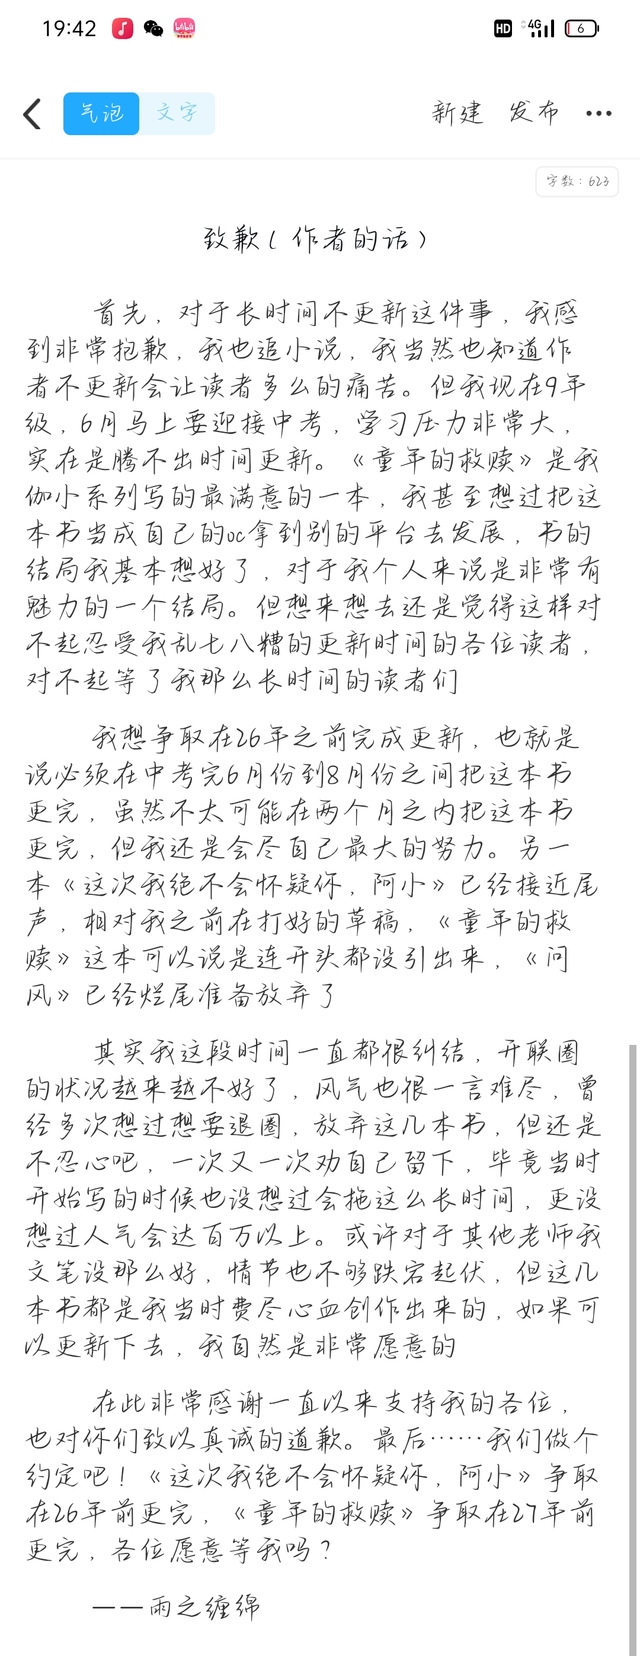 19:42
HD 4G 6
气泡 文字 新建 发布
字数：623
致歉（作者的话）
首先，对于长时间不更新这件事，我感
到非常抱歉，我也追小说，我当然也知道作
者不更新会让读者多么的痛苦。但我现在9年
级，6月马上要迎接中考，学习压力非常大，
实在是腾不出时间更新。《童年的救赎》是我
伽小系列写的最满意的一本，我甚至想过把这
本书当成自己的oc拿到别的平台去发展，书的
结局我基本想好了，对于我个人来说是非常有
魅力的一个结局。但想来想去还是觉得这样对
不起忍受我乱七八糟的更新时间的各位读者，
对不起等了我那么长时间的读者们
我想争取在26年之前完成更新，也就是
说必须在中考完6月份到8月份之间把这本书
更完，虽然不太可能在两个月之内把这本书
更完，但我还是会尽自己最大的努力。另一
本《这次我绝不会怀疑你，阿小》已经接近尾
声，相对我之前在打好的草稿，《童年的救
赎》这本可以说是连开头都没引出来，《问
风》已经烂尾准备放弃了
其实我这段时间一直都很纠结，开联圈
的状况越来越不好了，风气也很一言难尽，曾
经多次想过想要退圈，放弃这几本书，但还是
不忍心吧，一次又一次劝自己留下，毕竟当时
开始写的时候也没想过会拖这么长时间，更没
想过人气会达百万以上。或许对于其他老师我
文笔没那么好，情节也不够跌宕起伏，但这几
本书都是我当时费尽心血创作出来的，如果可
以更新下去，我自然是非常愿意的
在此非常感谢一直以来支持我的各位，
也对你们致以真诚的道歉。最后……我们做个
约定吧！《这次我绝不会怀疑你，阿小》争取
在26年前更完，《童年的救赎》争取在27年前
更完，各位愿意等我吗？
——雨之缠绵